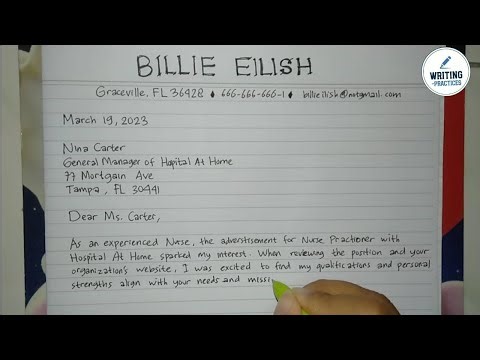 BILLIE EILISH
Graceville, FL 36428 • 666-666-666-1 • billieilish@notgmail.com
March 19, 2023
Nina Carter
General Manager of Hopital At Home
77 Mortgain Ave
Tampa, FL 30441
Dear Ms. Carter,
As an experienced Nurse, the advertisement for Nurse Practioner with
Hospital At Home sparked my interest. When reviewing the position and your
organization's website, I was excited to find my qualifications and personal
strengths align with your needs and missi
WRITING
PRACTICES